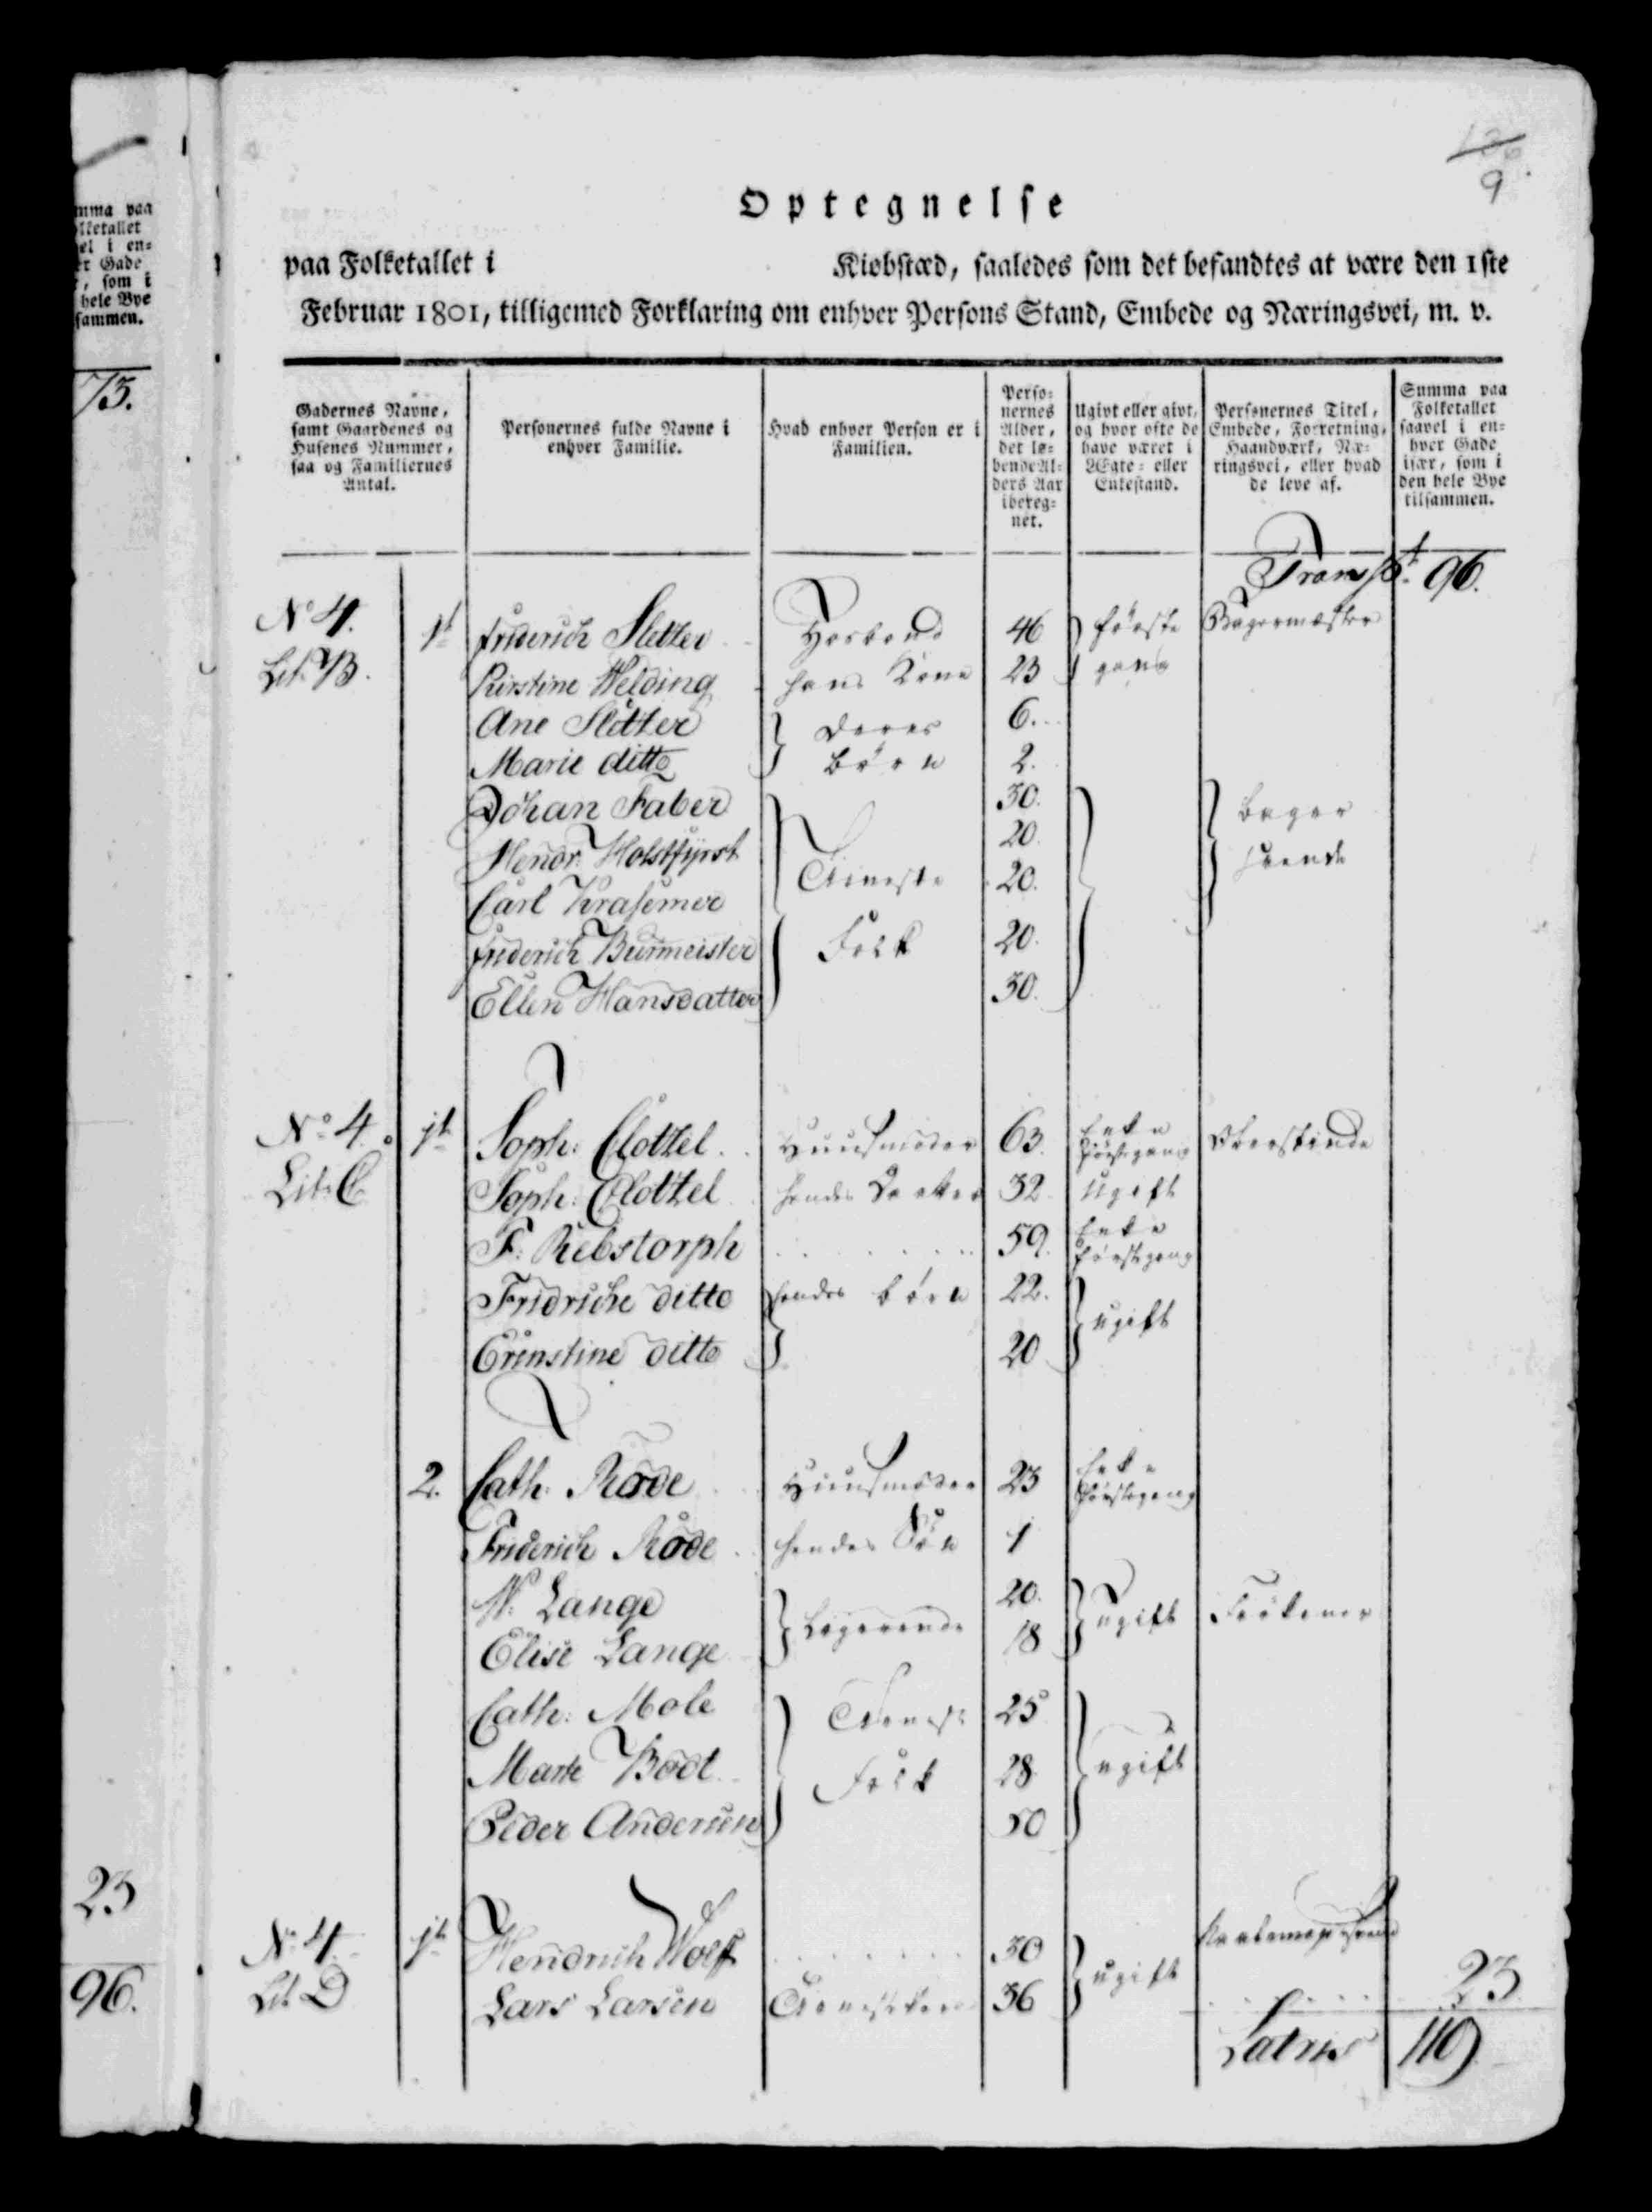 9
Optegnelse
paa Folketallet i Kiøbstæd, saaledes som det befandtes at være den 1ste
Februar 1801, tilligemed Forklaring om enhver Persons Stand, Embede og Næringsvei, m. v.
Gadernes Navne, samt Gaardenes og Husenes Nummer, saa og Familiernes Antal.
Personernes fulde Navne i enhver Familie.
Hvad enhver Person er i Familien.
Perso-nernes Alder, det lø-bende Al-ders Aar ibereg-net.
Ugivt eller givt, og hvor ofte de have været i Ægte- eller Enkestand.
Personernes Titel, Embede, Forretning, Haandværk, Næ-ringsvei, eller hvad de leve af.
Summa paa Folketallet saavel i en-hver Gade især, som i den hele Bye tilsammen.
Transpt. 96.
No 4. Lit. B. 1t friderich Sletter Hosbond 46 } første Bagermæster
Kirstine Welding hans Kone 23 } gang
Ane Sletter } deres 6.
Marie ditto } børn 2.
Johan Faber 30. } bager
Hendr. Holstfyrst 20. svende
Carl 20.
Tieneste
friderich Burmeister Folk 20.
Ellen Hansdatter 30.
No 4. Lit. C 1t Soph: Clottel Huusmoder 63. Enke førstegang Oberstinde
Soph: Clottel hendes Datter 32 ugift
F: Rebstorph 59. Enke førstegang
Fridriche ditto hendes børn 22. } ugift
Ernstine ditto } 20
2. Cath: Rode Huusmoder 23 Enke førstegang
Friderich Rode hendes Søn 1
W: Lange } Logerende 20. } ugift Frøkener
Elise Lange 18
Cath: Mole } Tieneste 25 }
Marte Bodt Folk 28 ugift
Peder Andersen 50
No 4. Lit D 1t Hendrich Wolff 30 } ugift
Lars Larsen 36 23
Latus 119
mma paa
lketallet
el i en-
er Gade
r, som i
hele Bye
sammen.
73.
23
96.